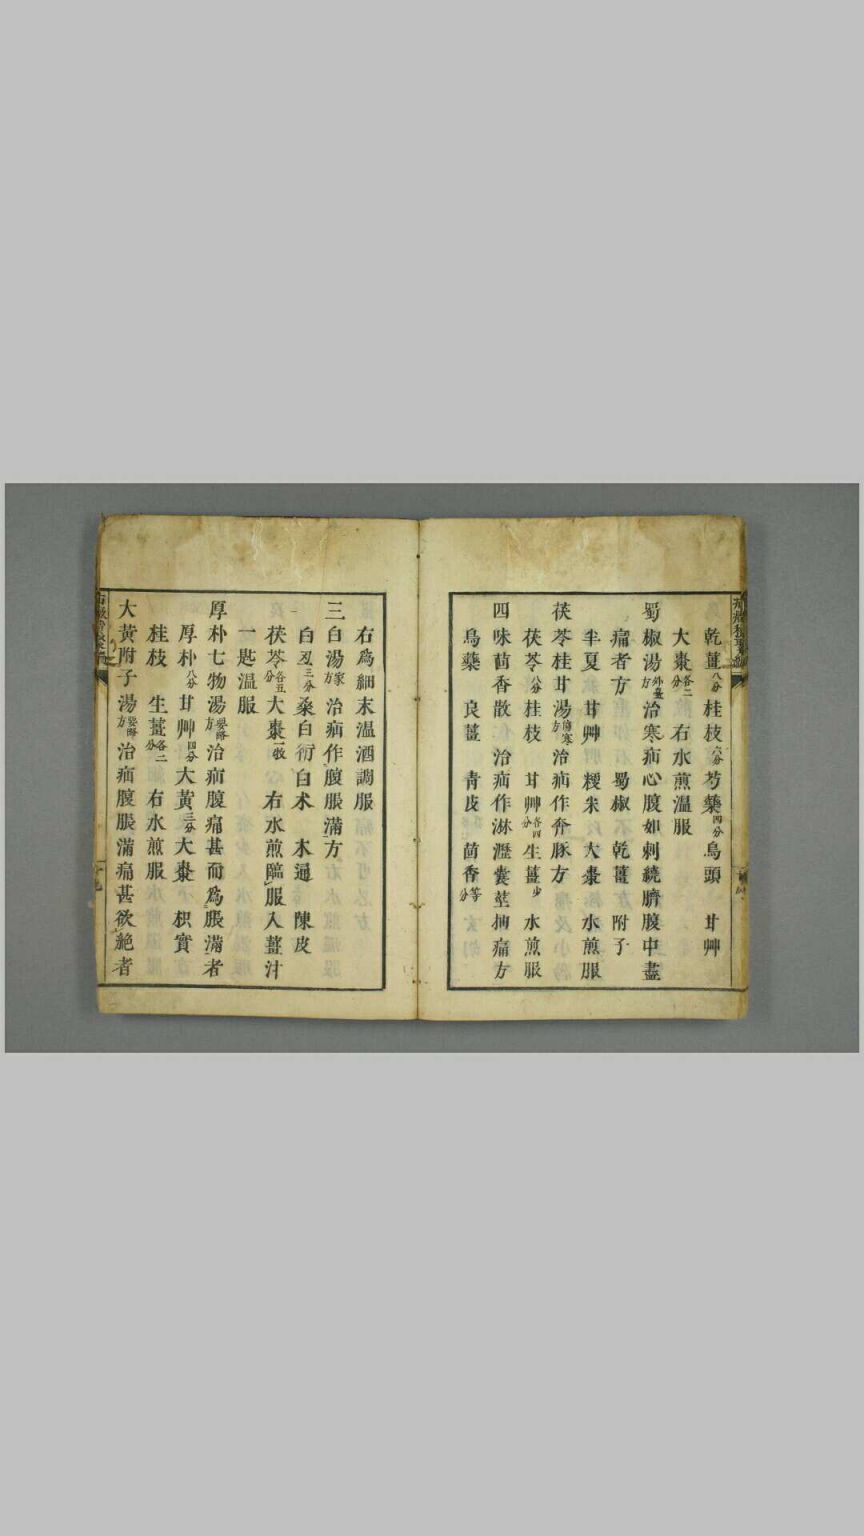 乾薑八分 桂枝六分 芍藥四分 烏頭 甘艸
大棗各二分 右水煎溫服
蜀椒湯外臺方 治寒疝心腹如刺繞臍腹中盡
痛者方 蜀椒 乾薑 附子
半夏 甘艸 粳米 大棗 水煎服
茯苓桂甘湯傷寒方 治疝作奔豚方
茯苓八分 桂枝 甘艸各四分 生薑少 水煎服
四味茴香散 治疝作淋瀝囊莖抽痛方
烏藥 良薑 青皮 茴香等分
右爲細末温酒調服
三白湯家方 治疝作腹脹滿方
三分 桑白 白朮 木通 陳皮
茯苓各五分 大棗一枚 右水煎臨服入薑汁
一匙温服
厚朴七物湯要略方 治疝腹痛甚而爲脹滿者
厚朴八分 甘艸四分 大黃三分 大棗 枳實
桂枝 生薑各二分 右水煎服
大黃附子湯要略方 治疝腹脹滿痛甚欲絶者